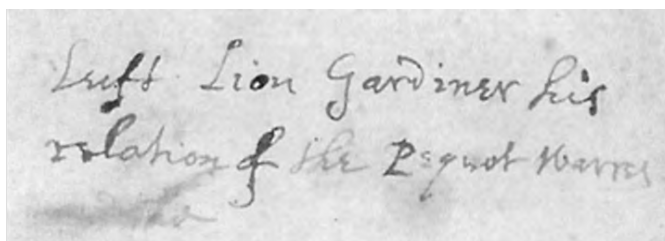 Leift Lion Gardiner his
relation of the Pequot Warres